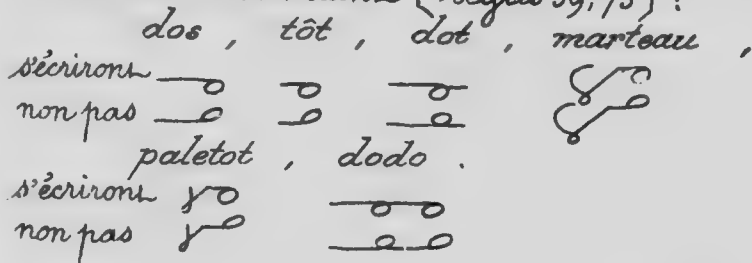 (Règles 39, 75) :
dos , tôt , dot , marteau ,
s'écrirons
non pas
paletot , dodo .
s'écrirons
non pas